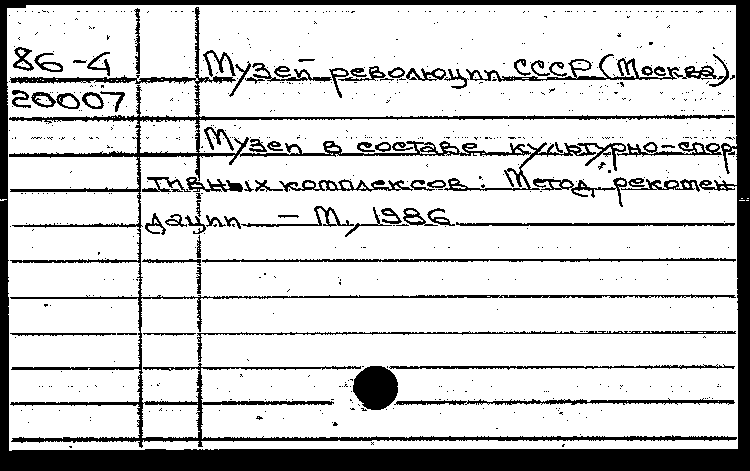 86-4 Музей революции СССР (Москва).
20007
Музеи в составе культурно-спор-
тивных комплексов: Метод. рекомен-
дации. – М., 1986.